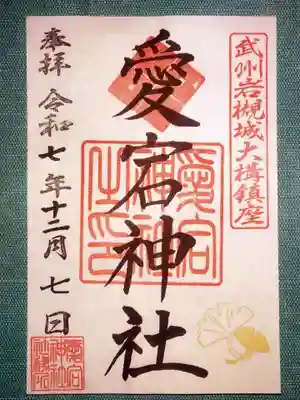 武州岩槻城大構鎮座
愛宕神社
奉拝 令和七年十二月七日
愛宕
神社